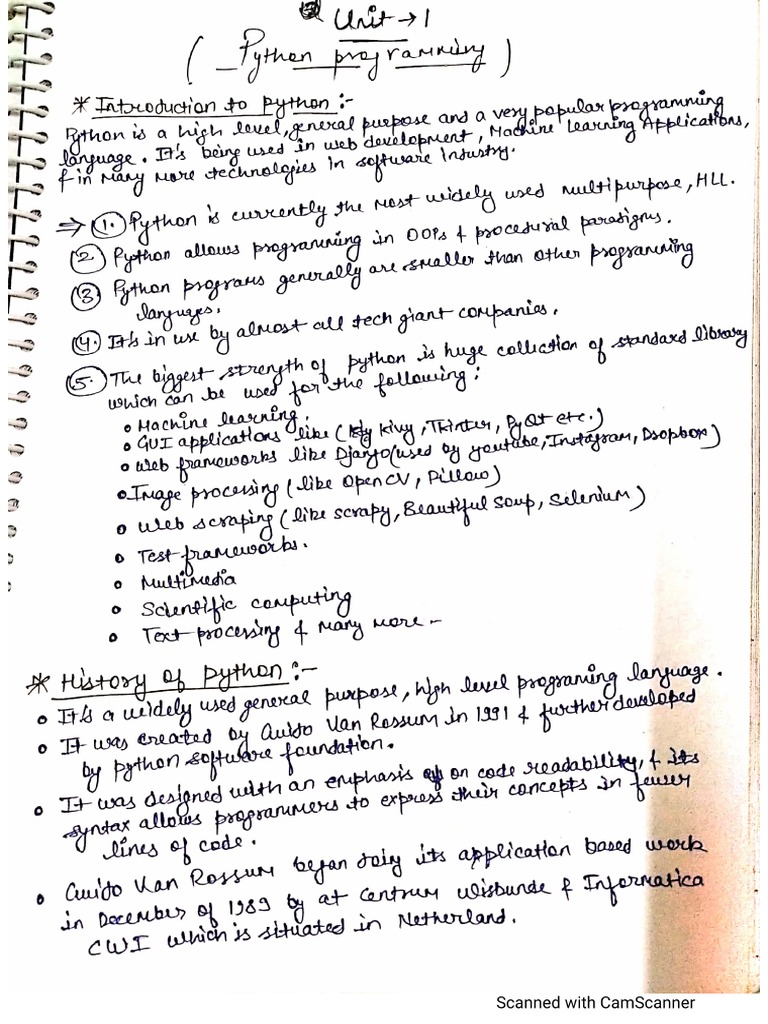 Unit → 1
( Python programming )
* Introduction to python :-
Python is a high level, general purpose and a very popular programming
language. It's being used in web development, Machine Learning Applications,
& in many more technologies in software industry.
⇒ 1. Python is currently the most widely used multipurpose, HLL.
2 Python allows programming in OOPs & procedural paradigms.
3 Python programs generally are smaller than other programming
languages.
4. It's in use by almost all tech giant companies.
5. The biggest strength of python is huge collection of standard library
which can be used for the following :
• Machine learning.
• GUI applications like ( Kivy, Tkinter, PyQt etc.)
• Web frameworks like Django (used by youtube, Instagram, Dropbox)
• Image processing (like OpenCV, Pillow)
• Web scraping (like scrapy, Beautiful Soup, Selenium)
• Test frameworks.
• Multimedia
• Scientific computing
• Text processing & many more -
* History of python :-
• It's a widely used general purpose, high level programing language.
• It was created by Guido Van Rossum in 1991 & further developed
by python software foundation.
• It was designed with an emphasis on code readability, & its
syntax allows programmers to express their concepts in fewer
lines of code.
• Guido Van Rossum began doing its application based work
in December of 1989 by at Centrum Wisbunde & Informatica
CWI which is situated in Netherland.
Scanned with CamScanner